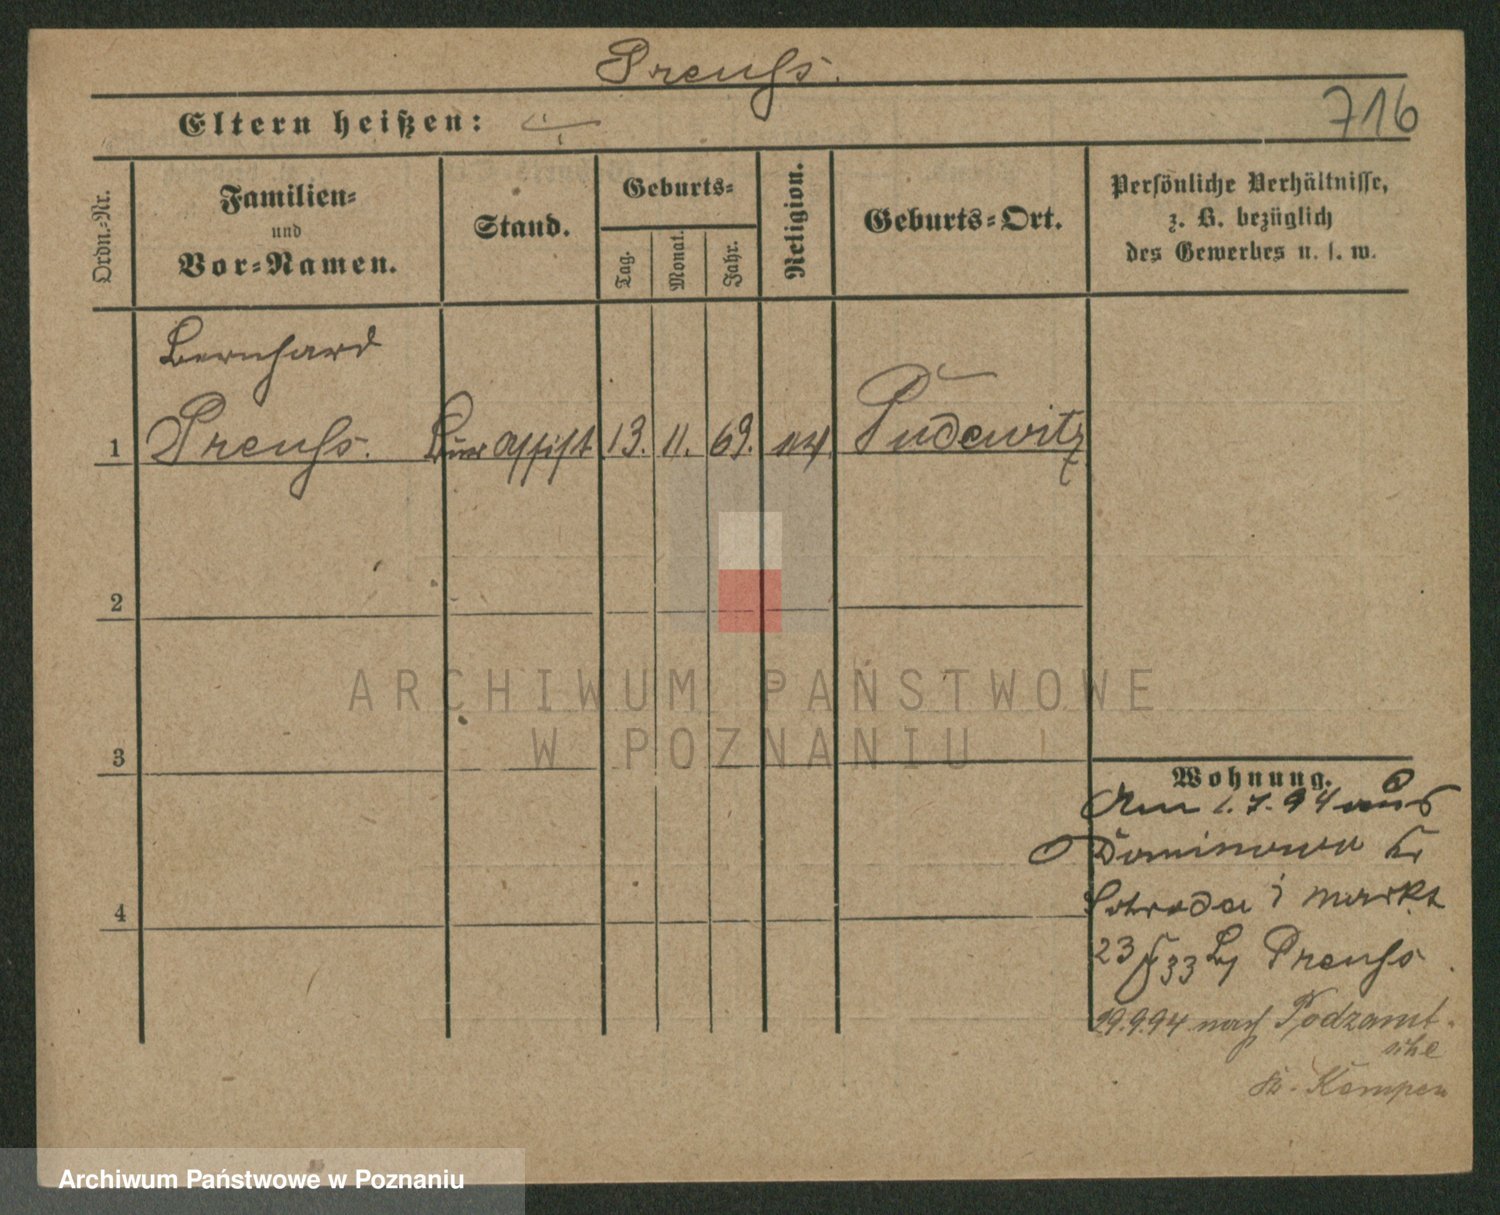 Preuß.
716
Eltern heißen:
Ordn.-Nr.
Familien-
und
Vor-Namen.
Stand.
Geburts-
Tag.
Monat.
Jahr.
Religion.
Geburts-Ort.
Persönliche Verhältnisse,
z. B. bezüglich
des Gewerbes u. s. w.
Bernhard
1 Preuß. Assist 13. 11. 69. Pudewitz
2
3
4
Wohnung.
Am 1.7.94 aus
Dominowo Kr
Schroda i Markt
23 33 Preuß
29.9.94 nach Podzamt-
sche
Kr. Kempen
ARCHIWUM PAŃSTWOWE
W POZNANIU
Archiwum Państwowe w Poznaniu